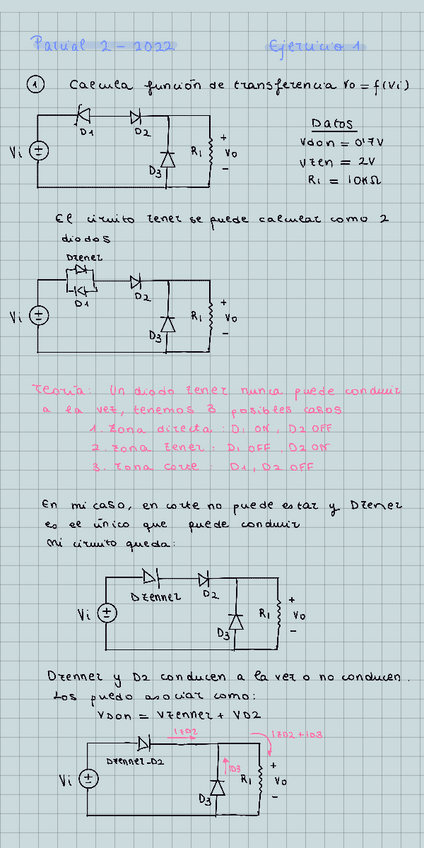 Parcial 2 - 2022 Ejercicio 1
1 Calcula función de transferencia Vo = f(Vi)
Datos
Vdon = 0'7V
Vzen = 2V
R1 = 10KΩ
Vi D1 D2 D3 R1 + Vo -
El circuito zener se puede calcular como 2
diodos
Dzener
Vi D1 D2 D3 R1 + Vo -
Teoría: Un diodo zener nunca puede conducir
a la vez, tenemos 3 posibles casos
1. Zona directa: D1 ON, D2 OFF
2. Zona zener: D1 OFF, D2 ON
3. Zona corte: D1, D2 OFF
En mi caso, en corte no puede estar y Dzener
es el único que puede conducir
Mi circuito queda:
Vi Dzenner D2 D3 R1 + Vo -
Dzenner y D2 conducen a la vez o no conducen.
Los puedo asociar como:
Vdon = Vzenner + VD2
Vi Dzenner-D2 D3 ID3 R1 + Vo -
IZD2 + ID3